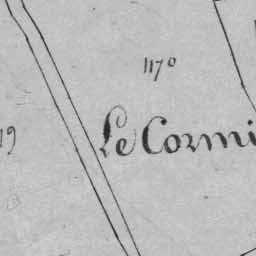 1170
19
Le Cormi